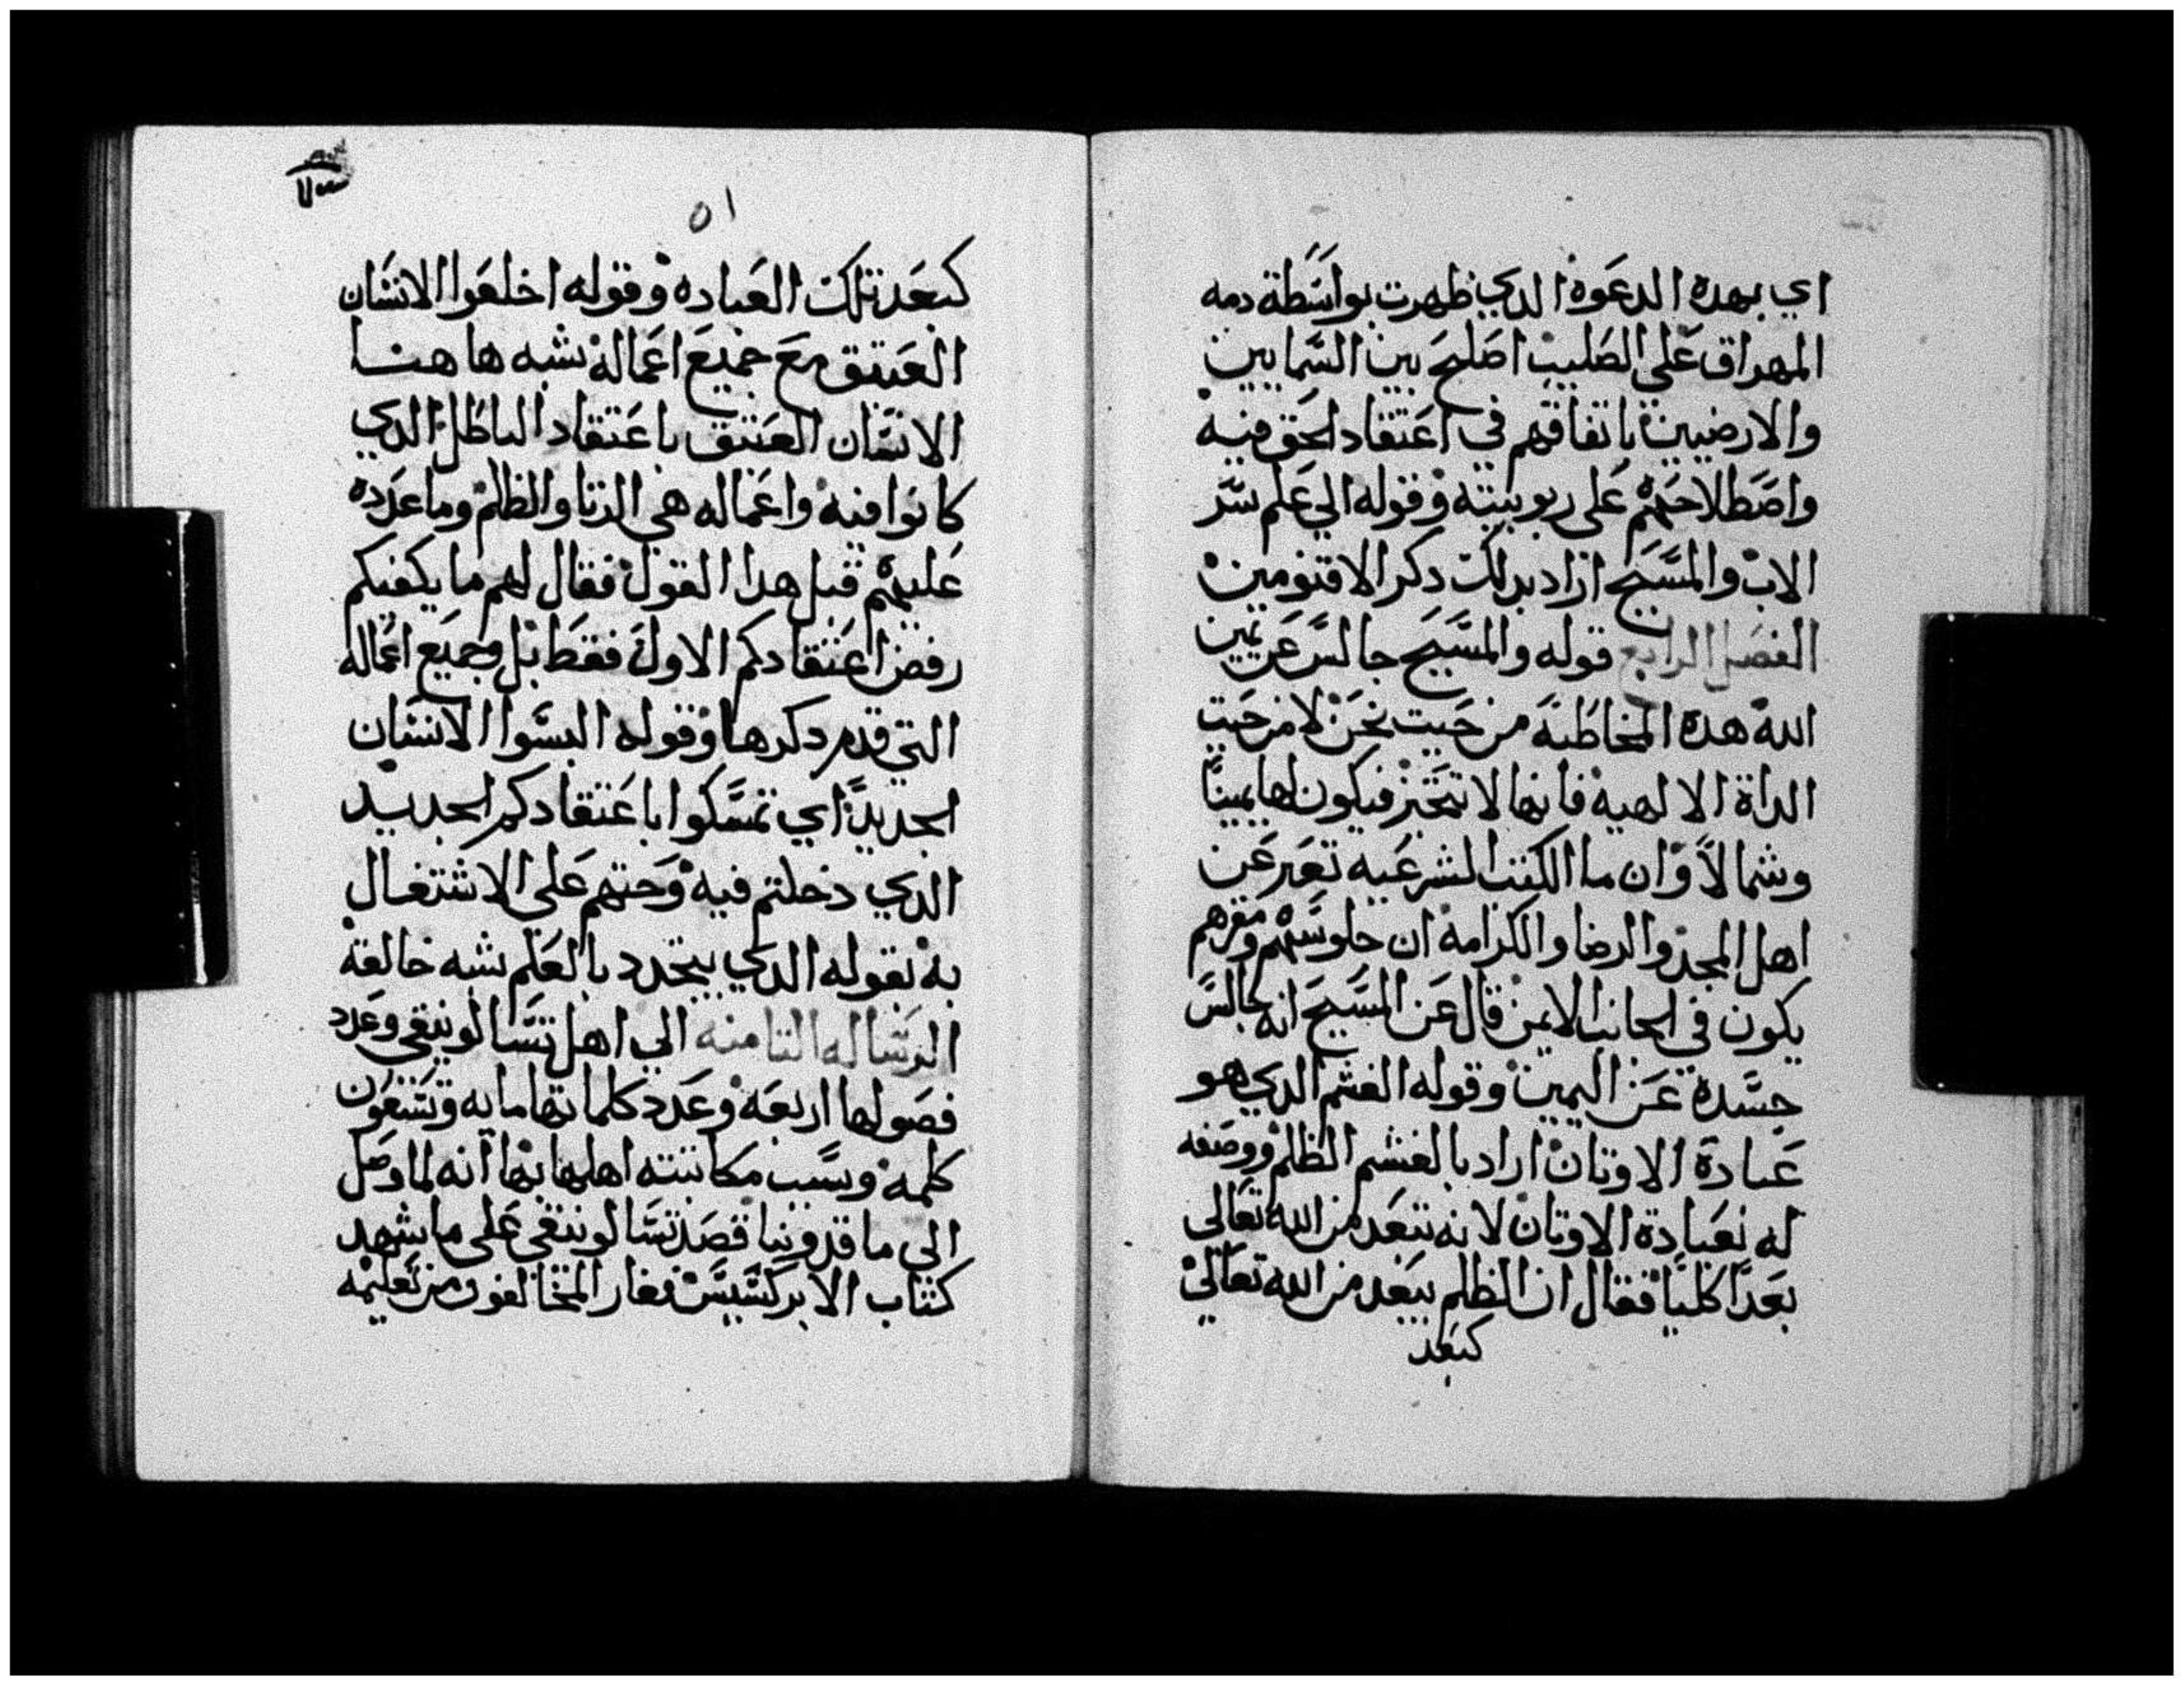 اي بهده الدعوه الدي ظهرت بواسطة دمه
المهراق على الصليب اصلح بين السمايين
والارضيين باتفاقهم في اعتقاد الحق فيه
واصطلاحهم على ربوبيته وقوله الي علم سر
الاب والمسيح اراد بدلك دكر الاقنومين
الفصل الرابع قوله والمسيح جالس عن يمين
الله هده المخاطبة من حيت نحن لا من حيت
الداة الالهيه فانها لا تتحيز فيكون لها يمينًا
وشمالاً وان ما الكتب الشرعيه تعبر عن
اهل المجد والرضا والكرامه ان جلوسهم ومقرهم
يكون في الجانب الايمن قال عن المسيح انه جالس
جسده عن اليمين وقوله الغشم الدي هو
عبادة الاوتان اراد بالغشم الظلم ووصفه
له بعبادة الاوتان لانه تبعد من الله تعالى
بعدًا كليًا فقال ان الظلم يبعد من الله تعالي
كبعد
٥١
كبعد تلك العباده وقوله اخلعوا الانسان
العتيق مع جميع اعماله يشبه هاهنا
الانسان العتيق باعتقاد الباطل الدي
كانوا فيه واعماله هي الزنا والظلم وما عدده
عليهم قبل هدا القول فقال لهم ما يكفيكم
رفض اعتقادكم الاول فقط بل وجميع اعماله
التي قدم دكرها وقوله البسوا الانسان
الجديد اي تمسكوا باعتقادكم الجديد
الدي دخلتم فيه وحتهم على الاشتغال
به بقوله الدي يتجدد بالعلم بشبه خالقه
الرساله التامنه الي اهل تسالونيقي وعدد
فصولها اربعه وعدد كلماتها مايه وتسعون
كلمه وسبب مكاتبته اهلها بها انه لما وصل
الي ماقدونيا قصد تسالونيقي على ما شهد
كتاب الابركسيس فغار المخالفون من تعليمه